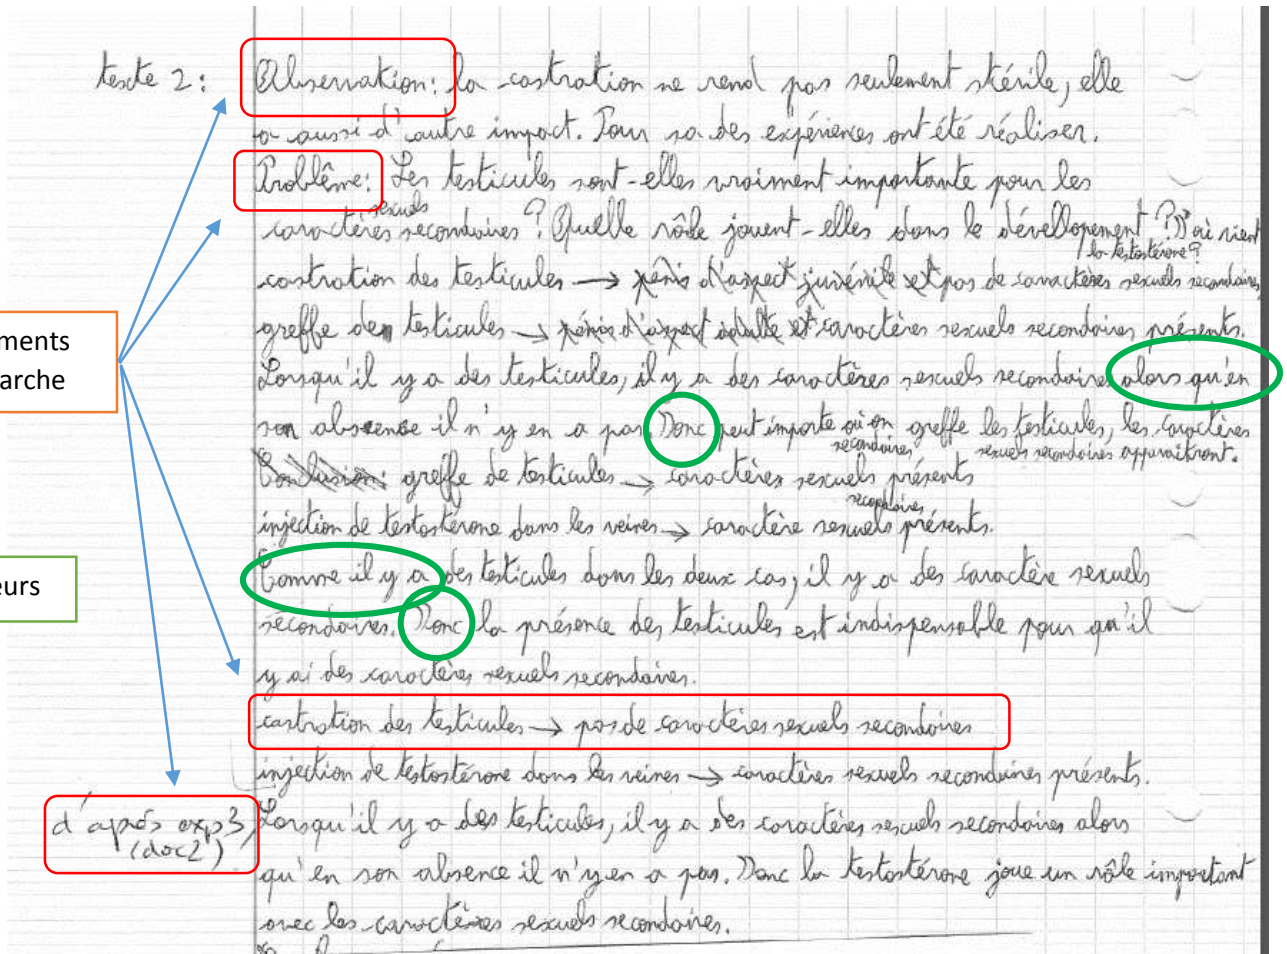 texte 2 : Observation : la castration ne rend pas seulement stérile, elle
a aussi d'autre impact. Pour sa des expériences ont été réaliser.
Problême : Les testicules sont-elles vraiment importante pour les
caractères sexuels secondaires ? Quelle rôle jouent-elles dans le dévellopement ? D'où vient
la testostérone ?
castration des testicules → pénis d'aspect juvénile et pas de caractères sexuels secondaires
greffe des testicules → pénis d'aspect adulte et caractères sexuels secondaires présents.
ments
arche
Lorsqu'il y a des testicules, il y a des caractères sexuels secondaires alors qu'en
son absence il n'y en a pas. Donc peut importe où on greffe les testicules, les caractères
sexuels secondaires apparaitront.
Conclusion : greffe de testicules → caractères sexuels secondaires présents
injection de testostérone dans les veines → caractère sexuels secondaires présents.
eurs
Comme il y a des testicules dans les deux cas, il y a des caractère sexuels
secondaires. Donc la présence des testicules est indispensable pour qu'il
y ai des caractères sexuels secondaires.
castration des testicules → pas de caractères sexuels secondaires
injection de testostérone dans les veines → caractères sexuels secondaires présents.
d'après exp3 (doc2) Lorsqu'il y a des testicules, il y a des caractères sexuels secondaires alors
qu'en son absence il n'y en a pas. Donc la testostérone joue un rôle important
avec les caractères sexuels secondaires.